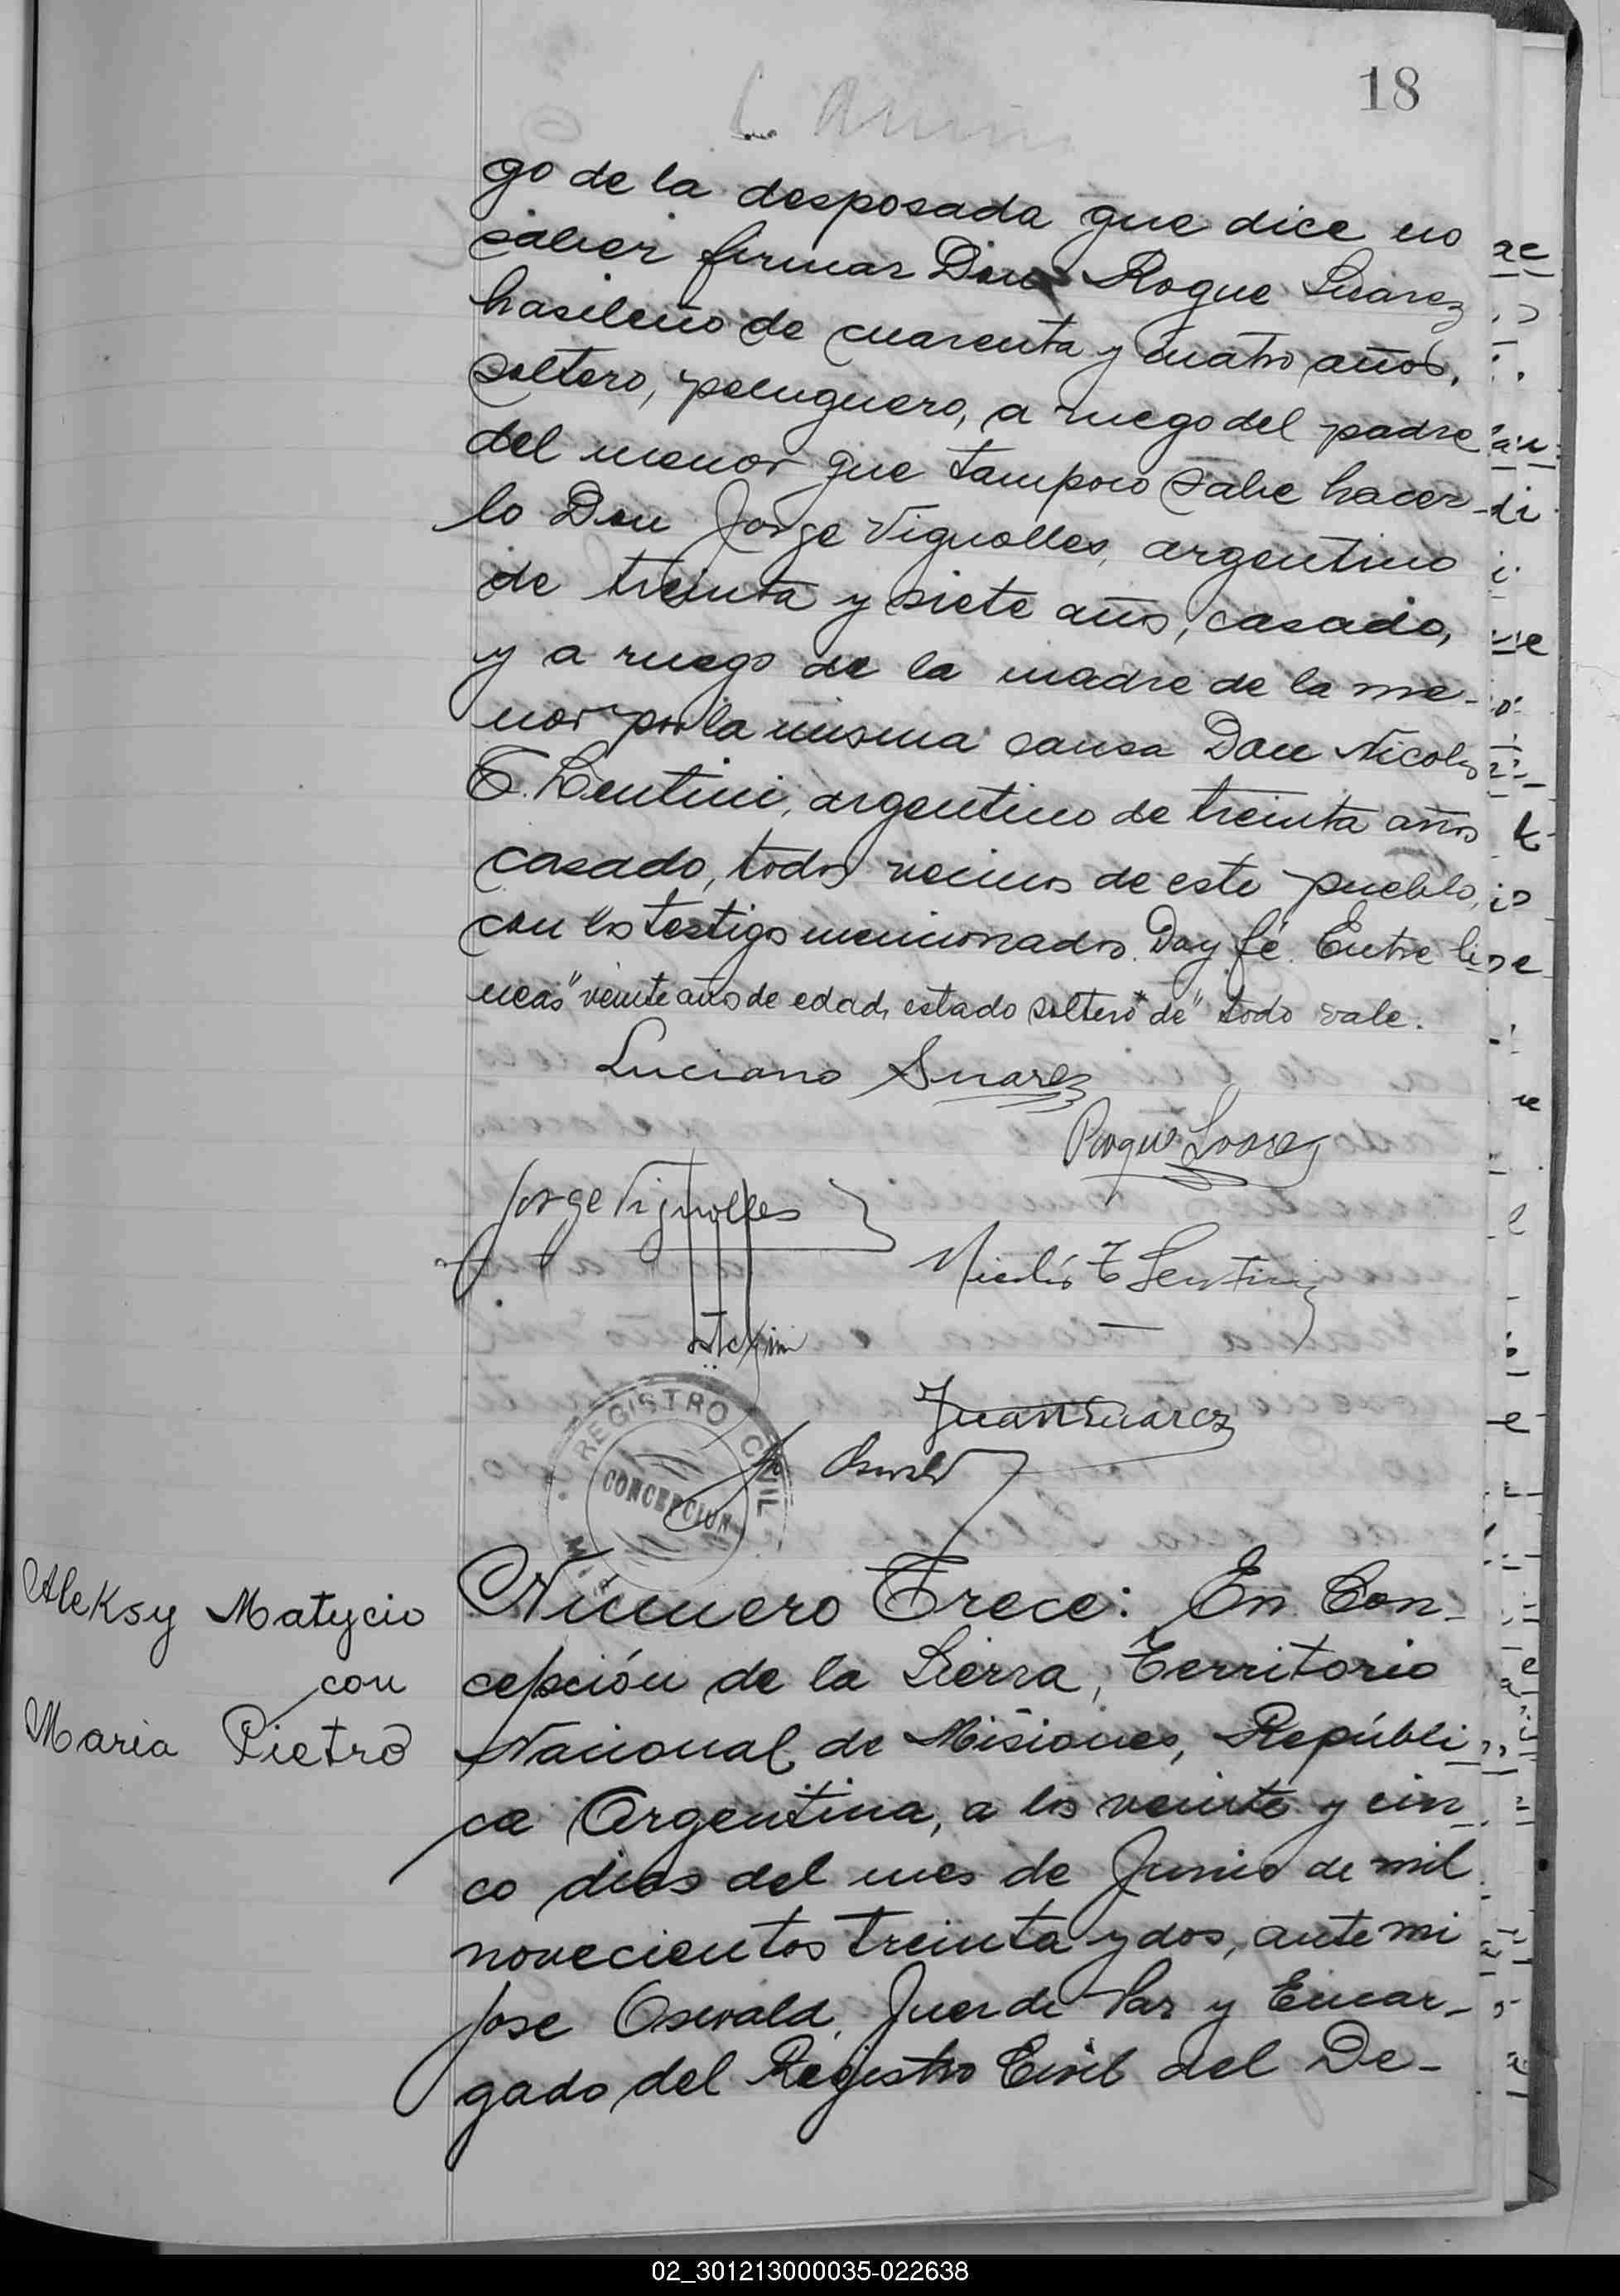 18
go de la desposada que dice no
saber firmar Don Roque Suarez
brasileño de cuarenta y cuatro años,
soltero, peluquero, a ruego del padre
del menor que tampoco sabe hacer-
lo Don Jorge Vignolles, argentino
de treinta y siete años, casado,
y a ruego de la madre de la me-
nor por la misma causa Don Nicolas
T. Lentini, argentino de treinta años
casado, todos vecinos de este pueblo,
con los testigos mencionados. Doy fé. Entre li
neas "veinte años de edad, estado soltero" "de" todo vale.
Luciano Suarez
Roque Suarez
Jorge Vignolles
Nicolás T Lentini
Juan Suarez
J Oswald
REGISTRO CIVIL
CONCEPCION
Aleksy Matycio
con
Maria Pietrō
Número Trece: En Con-
cepción de la Sierra, Territorio
Nacional de Misiones, Repúbli-
ca Argentina, a los veinte y cin-
co dias del mes de Junio de mil
novecientos treinta y dos, ante mi
Jose Oswald, Juez de Paz y Encar-
gado del Registro Civil del De-
02_301213000035-022638